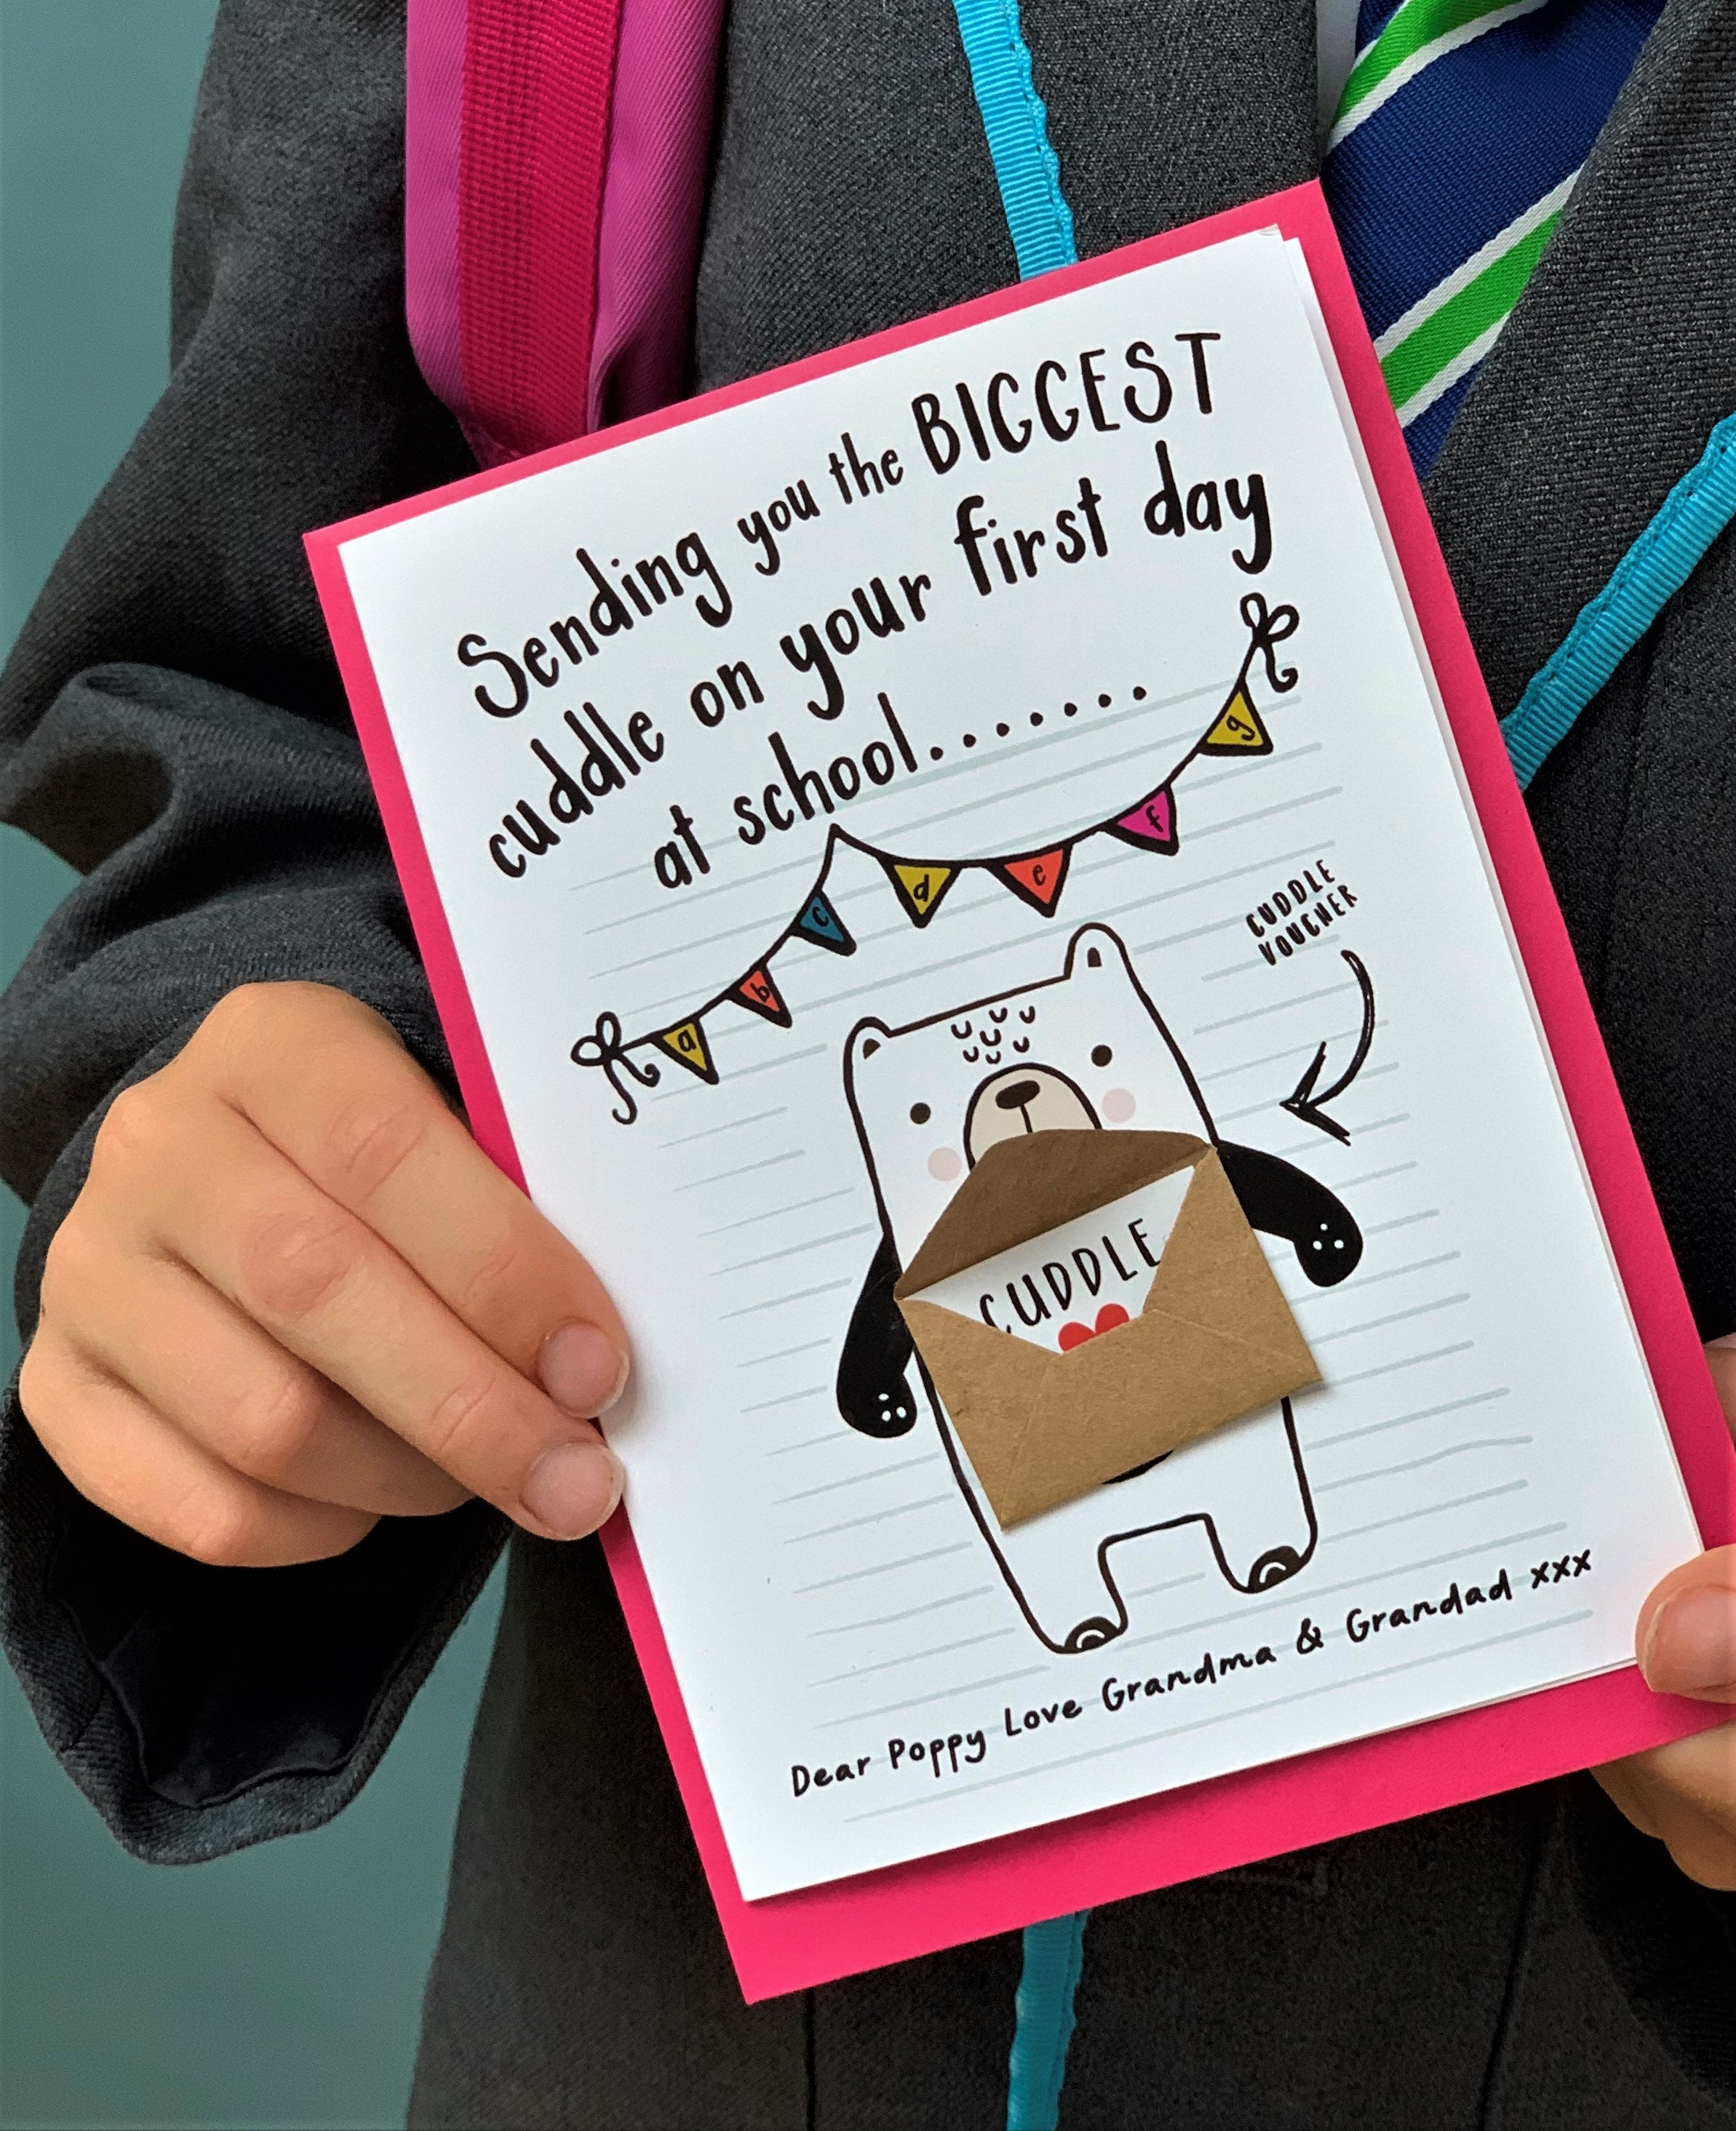 Sending you the BIGGEST
cuddle on your first day
at school.......
a b c d e f g
CUDDLE
VOUCHER
CUDDLE
Dear Poppy Love Grandma & Grandad xxx